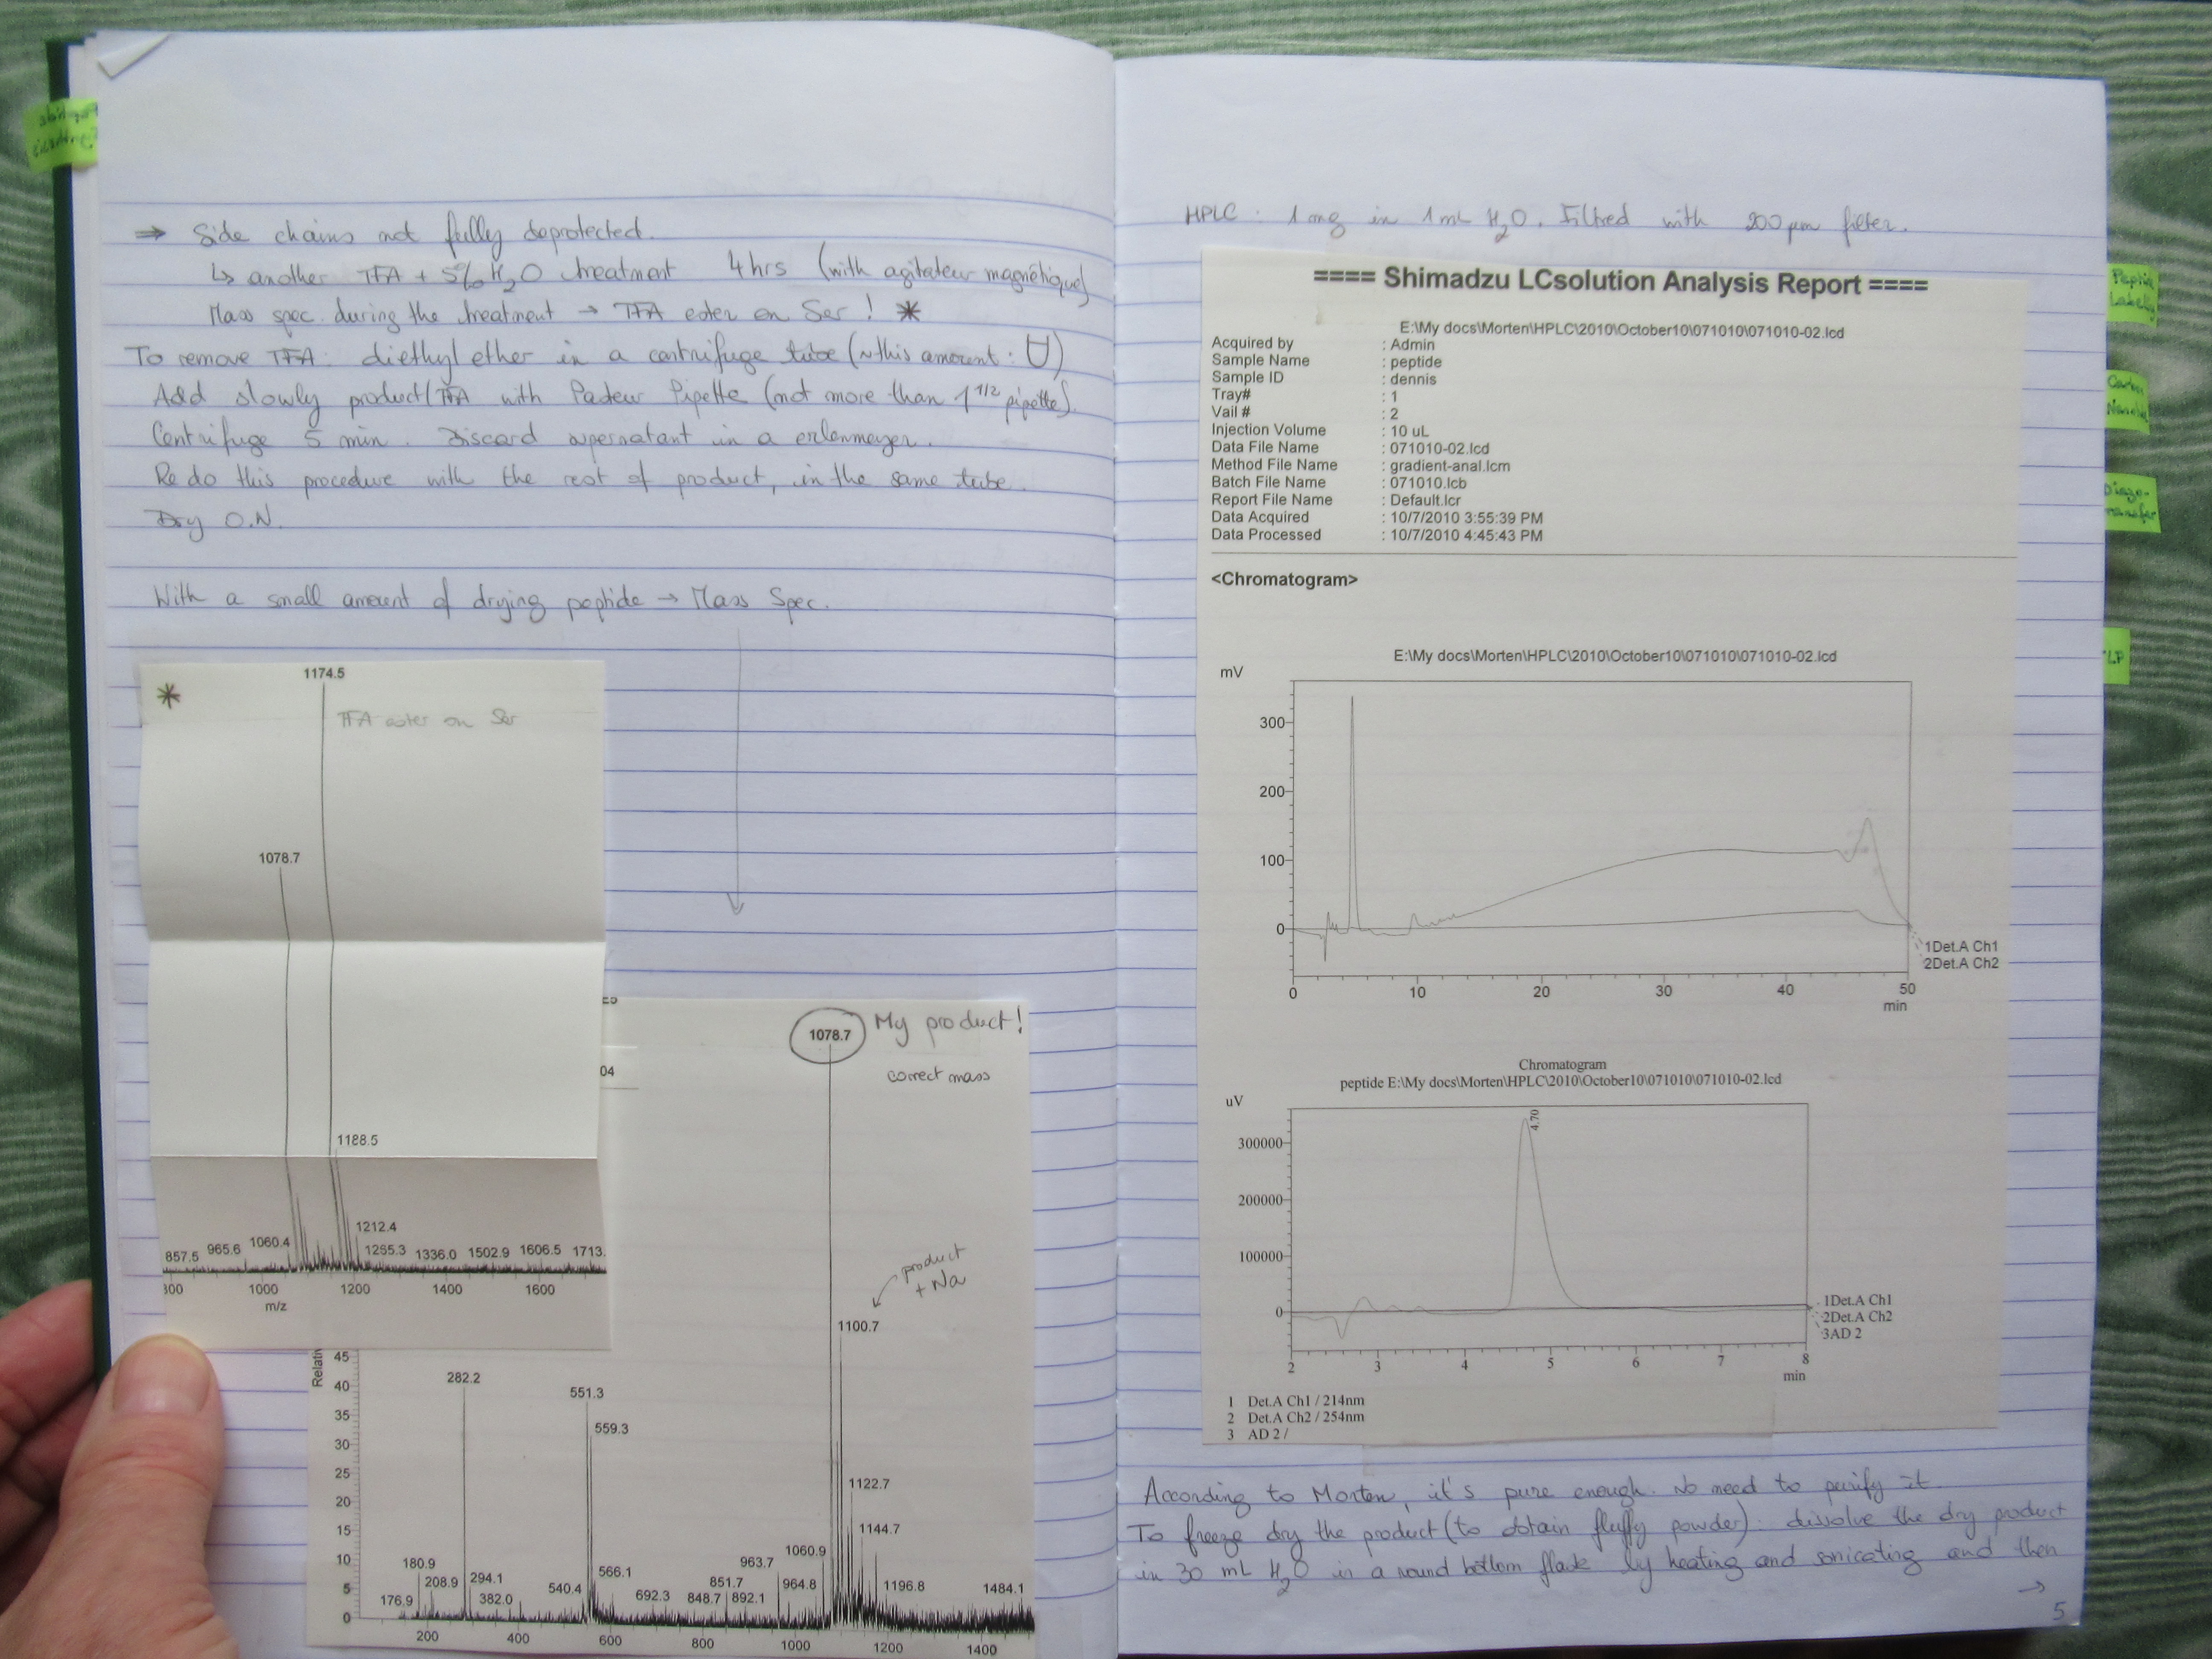 ⇒ Side chains not fully deprotected.
↳ another TFA + 5% H2O treatment 4hrs (with agitateur magnétique)
Mass spec. during the treatment → TFA ester on Ser ! *
To remove TFA : diethyl ether in a centrifuge tube (~this amount : U)
Add slowly product/TFA with Pasteur Pipette (not more than 1 1/2 pipette).
Centrifuge 5 min. Discard supernatant in a erlenmeyer.
Re do this procedure with the rest of product, in the same tube.
Dry O.N.
With a small amount of drying peptide → Mass Spec.
*
1174.5
TFA ester on Ser
1078.7
1188.5
1212.4
857.5 965.6 1060.4 1265.3 1336.0 1502.9 1606.5 1713.
800 1000 1200 1400 1600
m/z
04
1078.7 My product!
correct mass
product
+ Na
1100.7
Relativ
45
40
35
30
25
20
15
10
5
0
282.2
551.3
559.3
1122.7
1144.7
180.9
208.9
294.1
176.9
382.0
540.4
566.1
692.3
848.7
851.7
892.1
963.7
964.8
1060.9
1196.8
1484.1
200 400 600 800 1000 1200 1400
HPLC : 1 mg in 1 mL H2O. Filtred with 200 µm filter.
==== Shimadzu LCsolution Analysis Report ====
E:\My docs\Morten\HPLC\2010\October10\071010\071010-02.lcd
Acquired by : Admin
Sample Name : peptide
Sample ID : dennis
Tray# : 1
Vail # : 2
Injection Volume : 10 uL
Data File Name : 071010-02.lcd
Method File Name : gradient-anal.lcm
Batch File Name : 071010.lcb
Report File Name : Default.lcr
Data Acquired : 10/7/2010 3:55:39 PM
Data Processed : 10/7/2010 4:45:43 PM
<Chromatogram>
E:\My docs\Morten\HPLC\2010\October10\071010\071010-02.lcd
mV
300
200
100
0
1Det.A Ch1
2Det.A Ch2
0 10 20 30 40 50
min
Chromatogram
peptide E:\My docs\Morten\HPLC\2010\October10\071010\071010-02.lcd
uV
4.70
300000
200000
100000
0
1Det.A Ch1
2Det.A Ch2
3AD 2
2 3 4 5 6 7 8
min
1 Det.A Ch1 / 214nm
2 Det.A Ch2 / 254nm
3 AD 2 /
According to Morten, it's pure enough. No need to purify it.
To freeze dry the product (to obtain fluffy powder) : dissolve the dry product
in 30 mL H2O in a round bottom flask by heating and sonicating and then
→
5
Peptide
Labeling